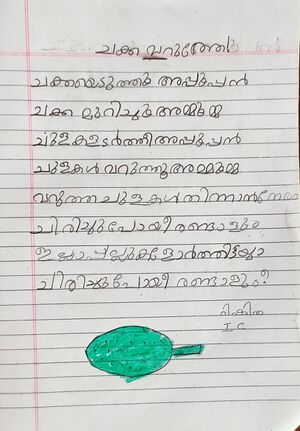 ചക്ക വറുത്തേ
ചക്കയെടുത്തു അപ്പൂപ്പൻ
ചക്ക മുറിച്ചു അമ്മൂമ്മ
ചുളകളടർത്തീ അപ്പൂപ്പൻ
ചുളകൾ വറുത്തൂ അമ്മൂമ്മ
വറുത്ത ചുളകൾ തിന്നാൻനേരം
ചിരിച്ചുപോയീ രണ്ടാളും
ഇല്ലാപ്പല്ലുകളോർത്തിട്ടല്ലോ
ചിരിച്ചുപോയീ രണ്ടാളും?
I C